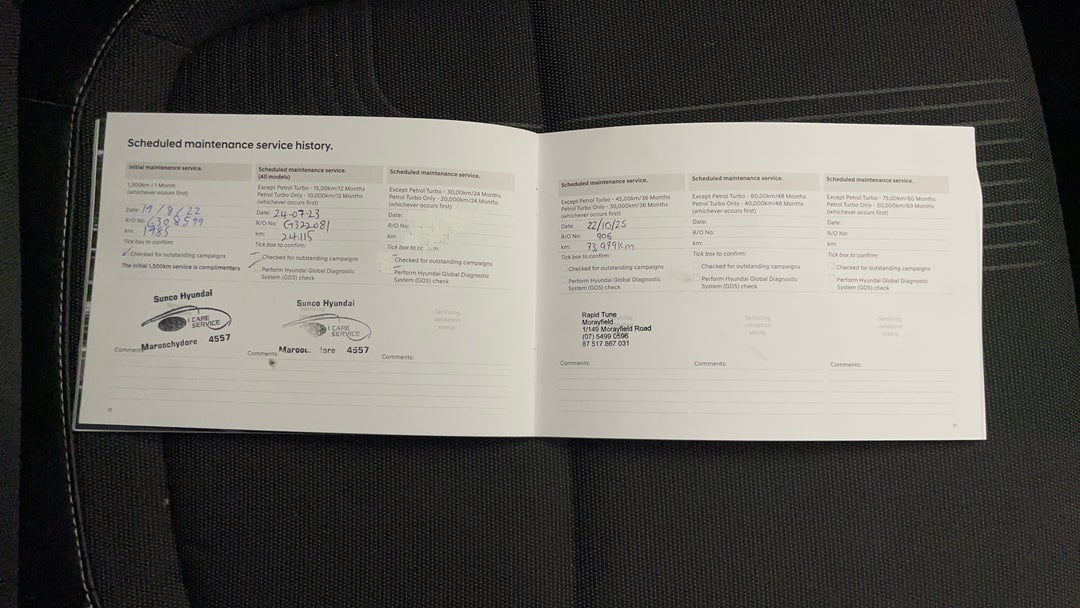 Scheduled maintenance service history.
Initial maintenance service.
1,500km / 1 Month
(whichever occurs first)
Date: 19/8/22
R/O No: G308599
km: 1985
Tick box to confirm:
Checked for outstanding campaigns
The initial 1,500km service is complimentary
Sunco Hyundai
I CARE
SERVICE
Maroochydore 4557
Comments:
20
Scheduled maintenance service.
(All models)
Except Petrol Turbo - 15,00km/12 Months
Petrol Turbo Only - 10,000km/12 Months
(whichever occurs first)
Date: 24-07-23
R/O No: G322081
km: 24115
Tick box to confirm:
Checked for outstanding campaigns
Perform Hyundai Global Diagnostic
System (GDS) check
Sunco Hyundai
I CARE
SERVICE
4557
Comments:
Scheduled maintenance service.
Except Petrol Turbo - 30,00km/24 Months
Petrol Turbo Only - 20,000km/24 Months
(whichever occurs first)
Date:
R/O No:
km:
Tick box to
Checked for outstanding campaigns
Perform Hyundai Global Diagnostic
System (GDS) check
Servicing
validation
stamp
Comments:
Scheduled maintenance service.
Except Petrol Turbo - 45,00km/36 Months
Petrol Turbo Only - 30,000km/36 Months
(whichever occurs first)
Date: 22/10/25
R/O No: 906
km: 73,979km
Tick box to confirm:
Checked for outstanding campaigns
Perform Hyundai Global Diagnostic
System (GDS) check
Rapid Tune
Morayfield
1/149 Morayfield Road
(07) 5499 0596
87 517 867 031
Comments:
Scheduled maintenance service.
Except Petrol Turbo - 60,00km/48 Months
Petrol Turbo Only - 40,000km/48 Months
(whichever occurs first)
Date:
R/O No:
km:
Tick box to confirm:
Checked for outstanding campaigns
Perform Hyundai Global Diagnostic
System (GDS) check
Servicing
validation
stamp
Comments:
Scheduled maintenance service.
Except Petrol Turbo - 75,00km/60 Months
Petrol Turbo Only - 50,000km/60 Months
(whichever occurs first)
Date:
R/O No:
km:
Tick box to confirm:
Checked for outstanding campaigns
Perform Hyundai Global Diagnostic
System (GDS) check
Servicing
validation
stamp
Comments:
21